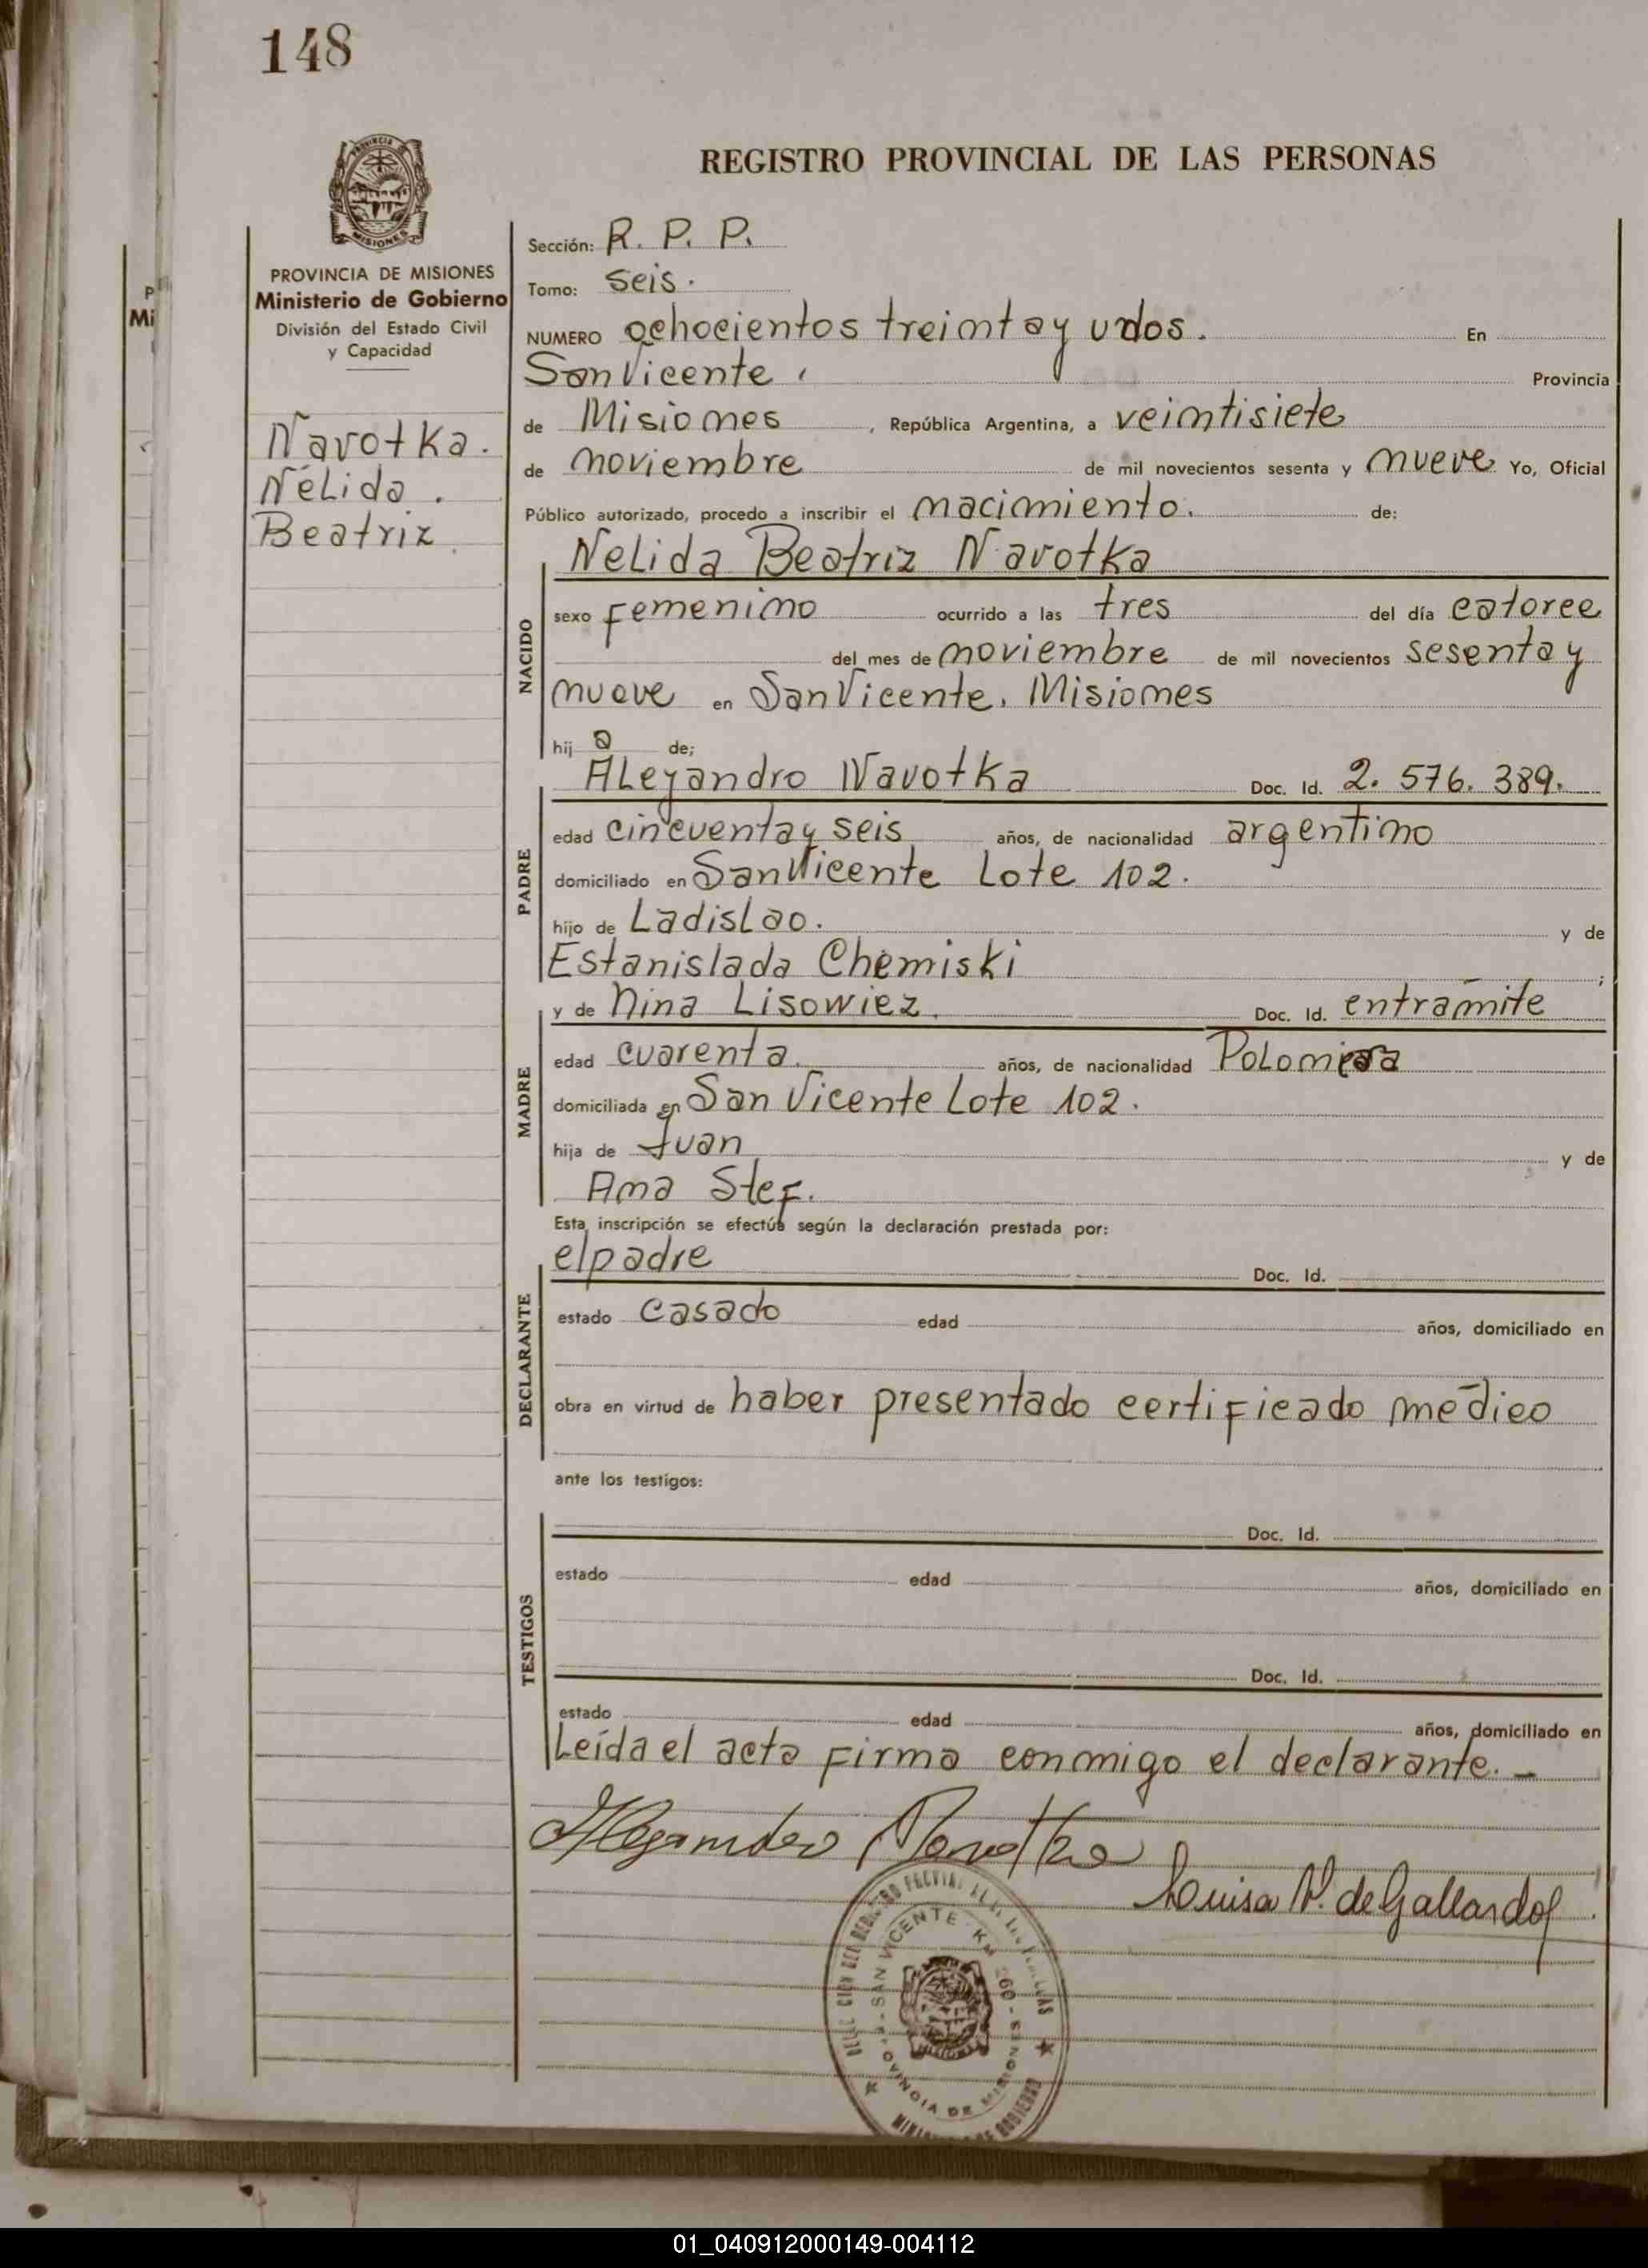 148
REGISTRO PROVINCIAL DE LAS PERSONAS
MISIONES
PROVINCIA DE MISIONES
Ministerio de Gobierno
División del Estado Civil
y Capacidad
Navotka.
Nélida.
Beatriz
Sección: R. P. P.
Tomo: seis.
NUMERO ochocientos treinta y dos. En
San Vicente, Provincia
de Misiones, República Argentina, a veintisiete
de noviembre de mil novecientos sesenta y nueve Yo, Oficial
Público autorizado, procedo a inscribir el nacimiento. de:
NACIDO
Nelida Beatriz Navotka
sexo femenino ocurrido a las tres del día catorce
del mes de noviembre de mil novecientos sesenta y
nueve en San Vicente. Misiones
hij a de;
PADRE
Alejandro Navotka Doc. Id. 2. 576. 389.
edad cincuenta y seis años, de nacionalidad argentino
domiciliado en San Vicente Lote 102.
hijo de Ladislao. y de
Estanislada Chemiski ;
MADRE
y de Nina Lisowiez. Doc. Id. en trámite
edad cuarenta. años, de nacionalidad Polonesa
domiciliada en San Vicente Lote 102.
hija de Juan y de
Ana Stef.
Esta inscripción se efectúa según la declaración prestada por:
DECLARANTE
el padre Doc. Id.
estado casado edad años, domiciliado en
obra en virtud de haber presentado certificado médico
ante los testigos:
TESTIGOS
Doc. Id.
estado edad años, domiciliado en
Doc. Id.
estado edad años, domiciliado en
Leída el acta firma conmigo el declarante. _
Alejandro Navotka
Luisa V. de Gallardo
SAN VICENTE - KM 260 - MISIONES
PROVINCIA DE MISIONES
01_040912000149-004112